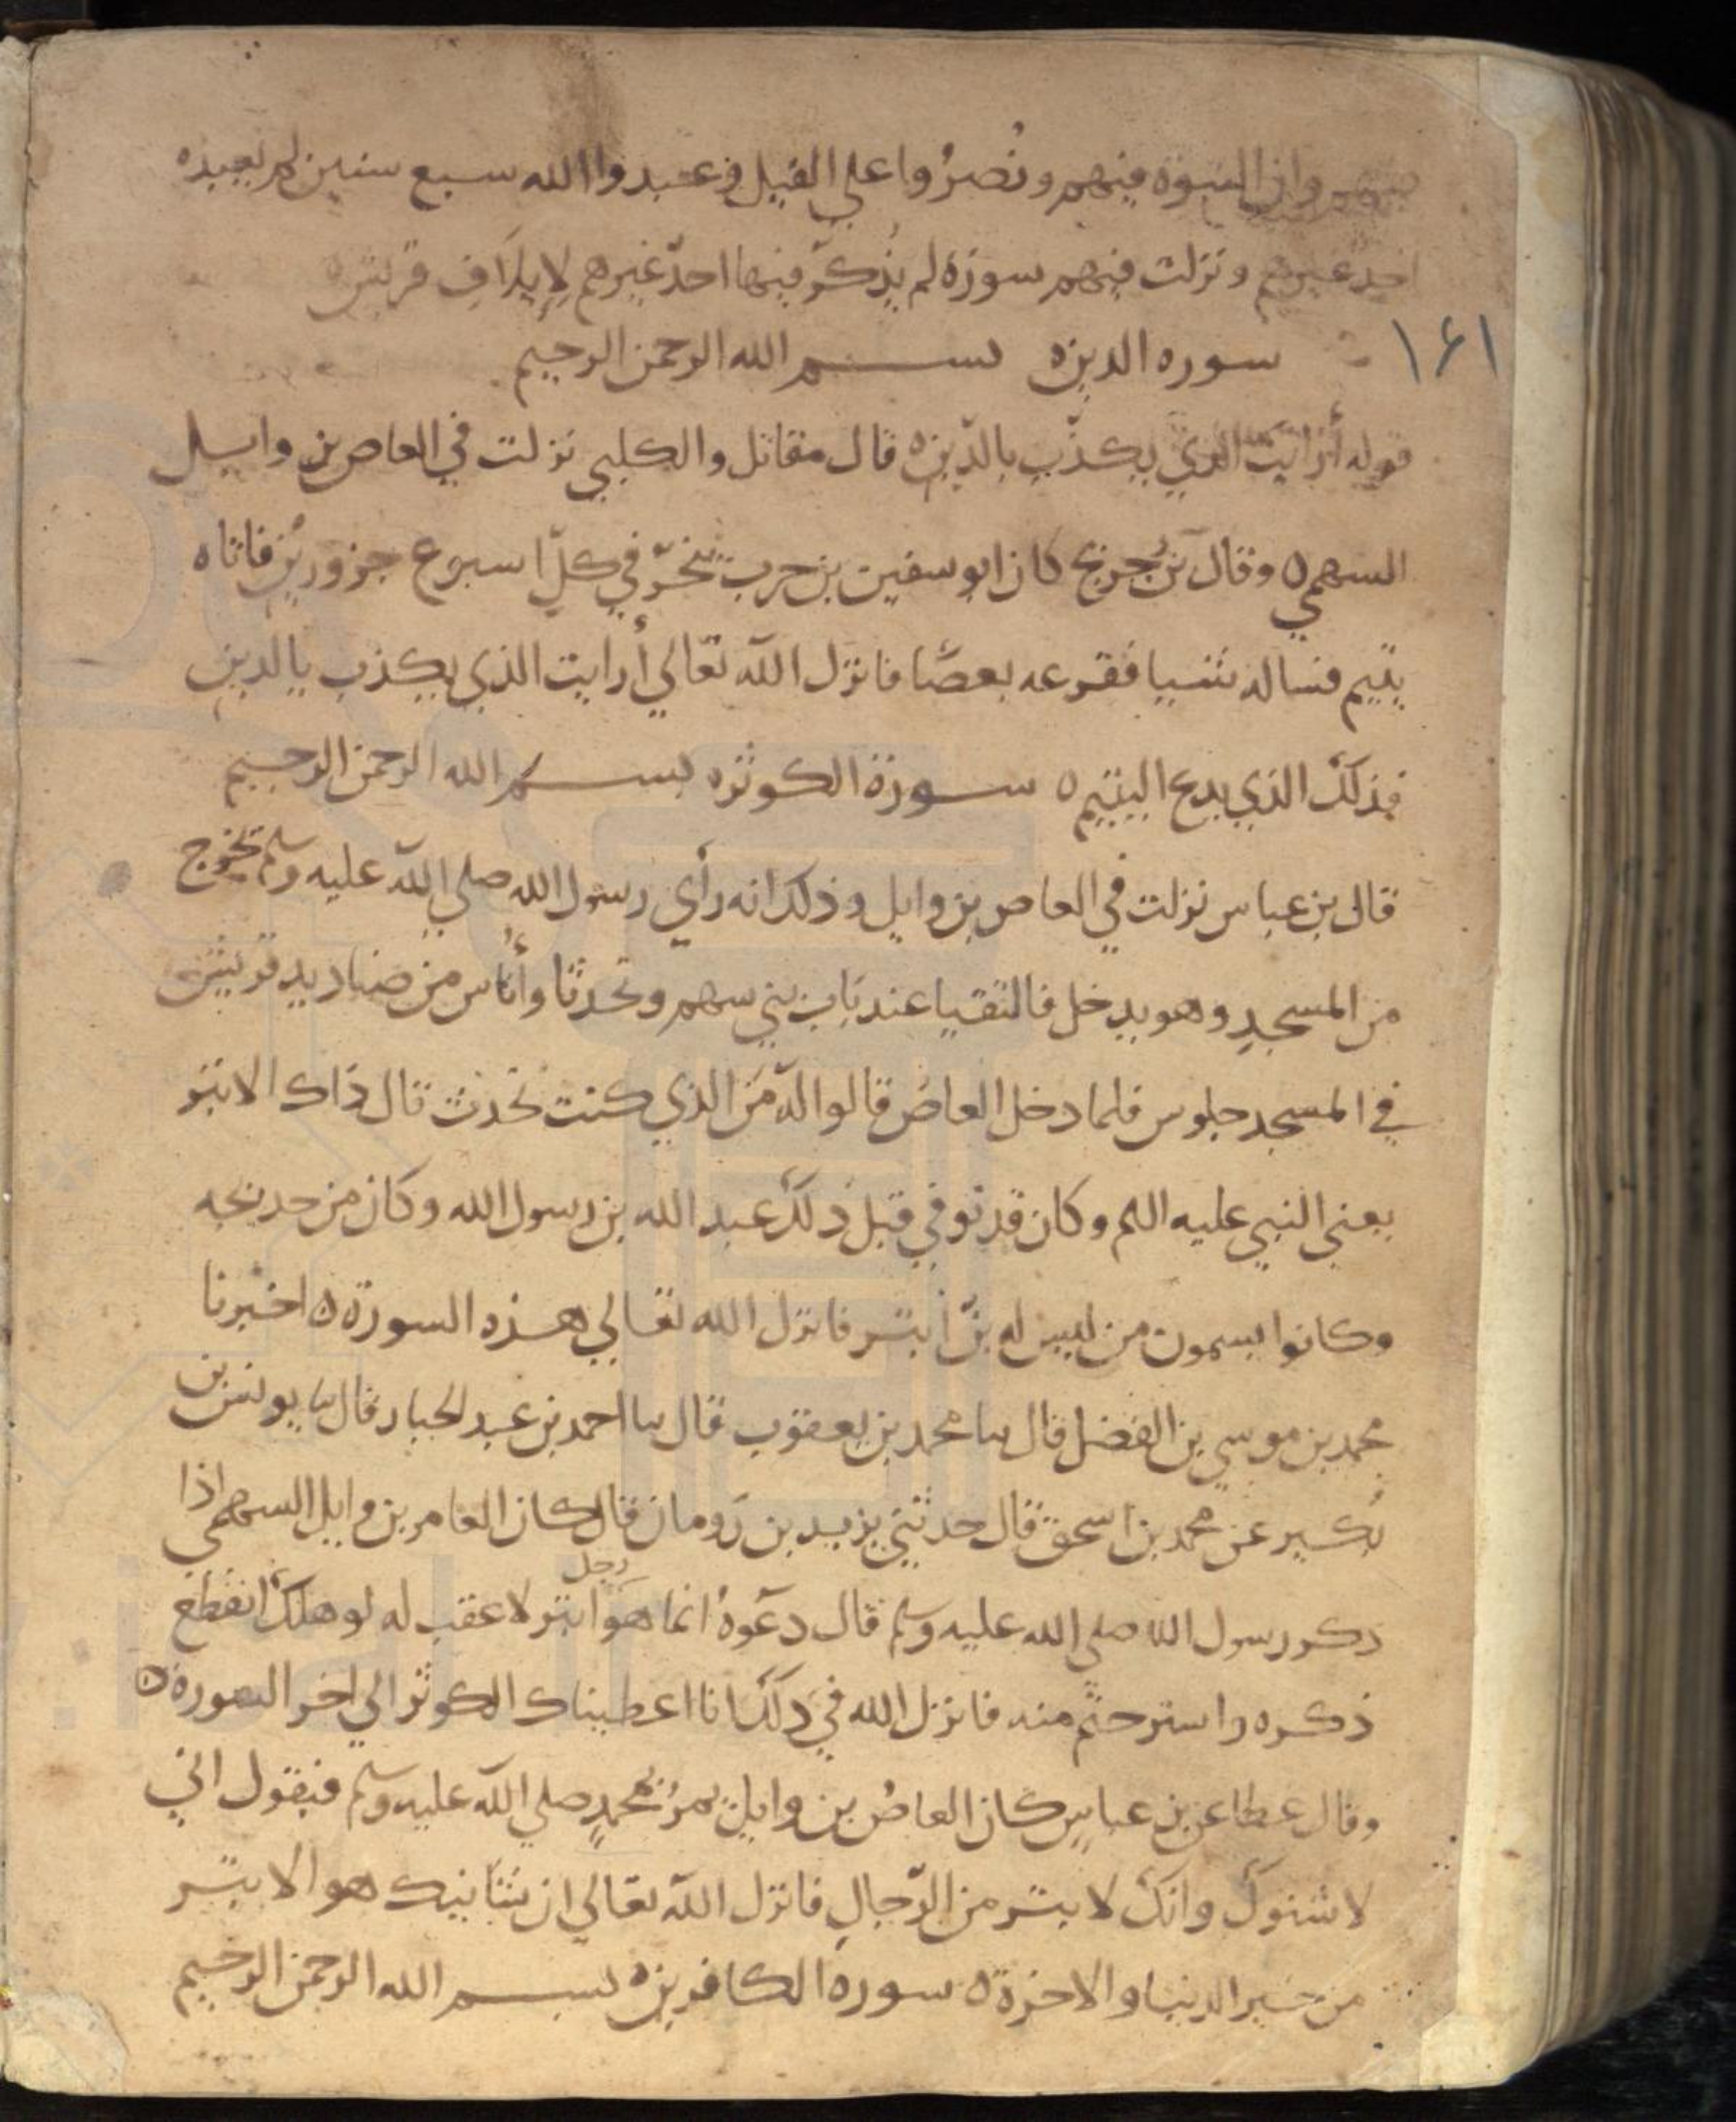 فيهم وان النبوة فيهم ونُصرُوا على الفيل وعبدوا الله سبع سنين لم يعبده
احد غيرهم ونزلت فيهم سورة لم يُذكر فيها احدٌ غيرهم لإيلاف قريش
١٤١ سوره الدين ه بسم الله الرحمن الرحيم
قوله أرايتَ الذي يكذّب بالدّين ه قال مقاتل والكلبي نزلت في العاص بن وايل
السهمي ه وقال بنُ جريج كان ابو سفين بن حرب ينحرُ في كلّ اسبوع جزورين فاتاه
يتيم فساله شيا فقرعه بعصًا فانزل الله تعالي أرايت الذي يكذب بالدين
فذلك الذي يدع اليتيم ه سورة الكوثر ه بسم الله الرحمن الرحيم
قال بن عباس نزلت في العاص بن وايل وذلك انه رأي رسول الله صلي الله عليه وسلم يخرج
من المسجدِ وهو يدخل فالتقيا عند باب بني سهم وتحدثا وأناس من صناديد قريش
في المسجد جلوس فلما دخل العاصُ قالوا له مَن الذي كنت تحدث قال ذاك الابتر
يعني النبي عليه السلم وكان قد توفي قبل ذلك عبد الله بن رسول الله وكان من خديجه
وكانوا يسمون من ليس له بنٌ ابتر فانزل الله تعالي هذه السورة ه اخبرنا
محمد بن موسي بن الفضل قال سا محمد بن يعقوب قال سا احمد بن عبد الجبار قال سا يونس بن
بُكير عن محمد بن اسحق قال حدثني يزيد بن رَومان قال كان العاص بن وايل السهمي اذا
ذكر رسول الله صلي الله عليه وسلم قال دعوهُ انما هو رجل ابتر لا عقب له لو هلك انقطع
ذكره واسترحتم منه فانزل الله في ذلك انا اعطيناك الكوثر الي اخر السورة ه
وقال عطا عن بن عباسٍ كان العاصُ بن وايل يمرُ بمحمدٍ صلي الله عليه وسلم فيقول اني
لاشنوك وانك لابتر من الرّجالِ فانزل الله تعالي ان شانيك هو الابتر
من خير الدنيا والاخرة ه سورة الكافرين ه بسم الله الرحمن الرحيم